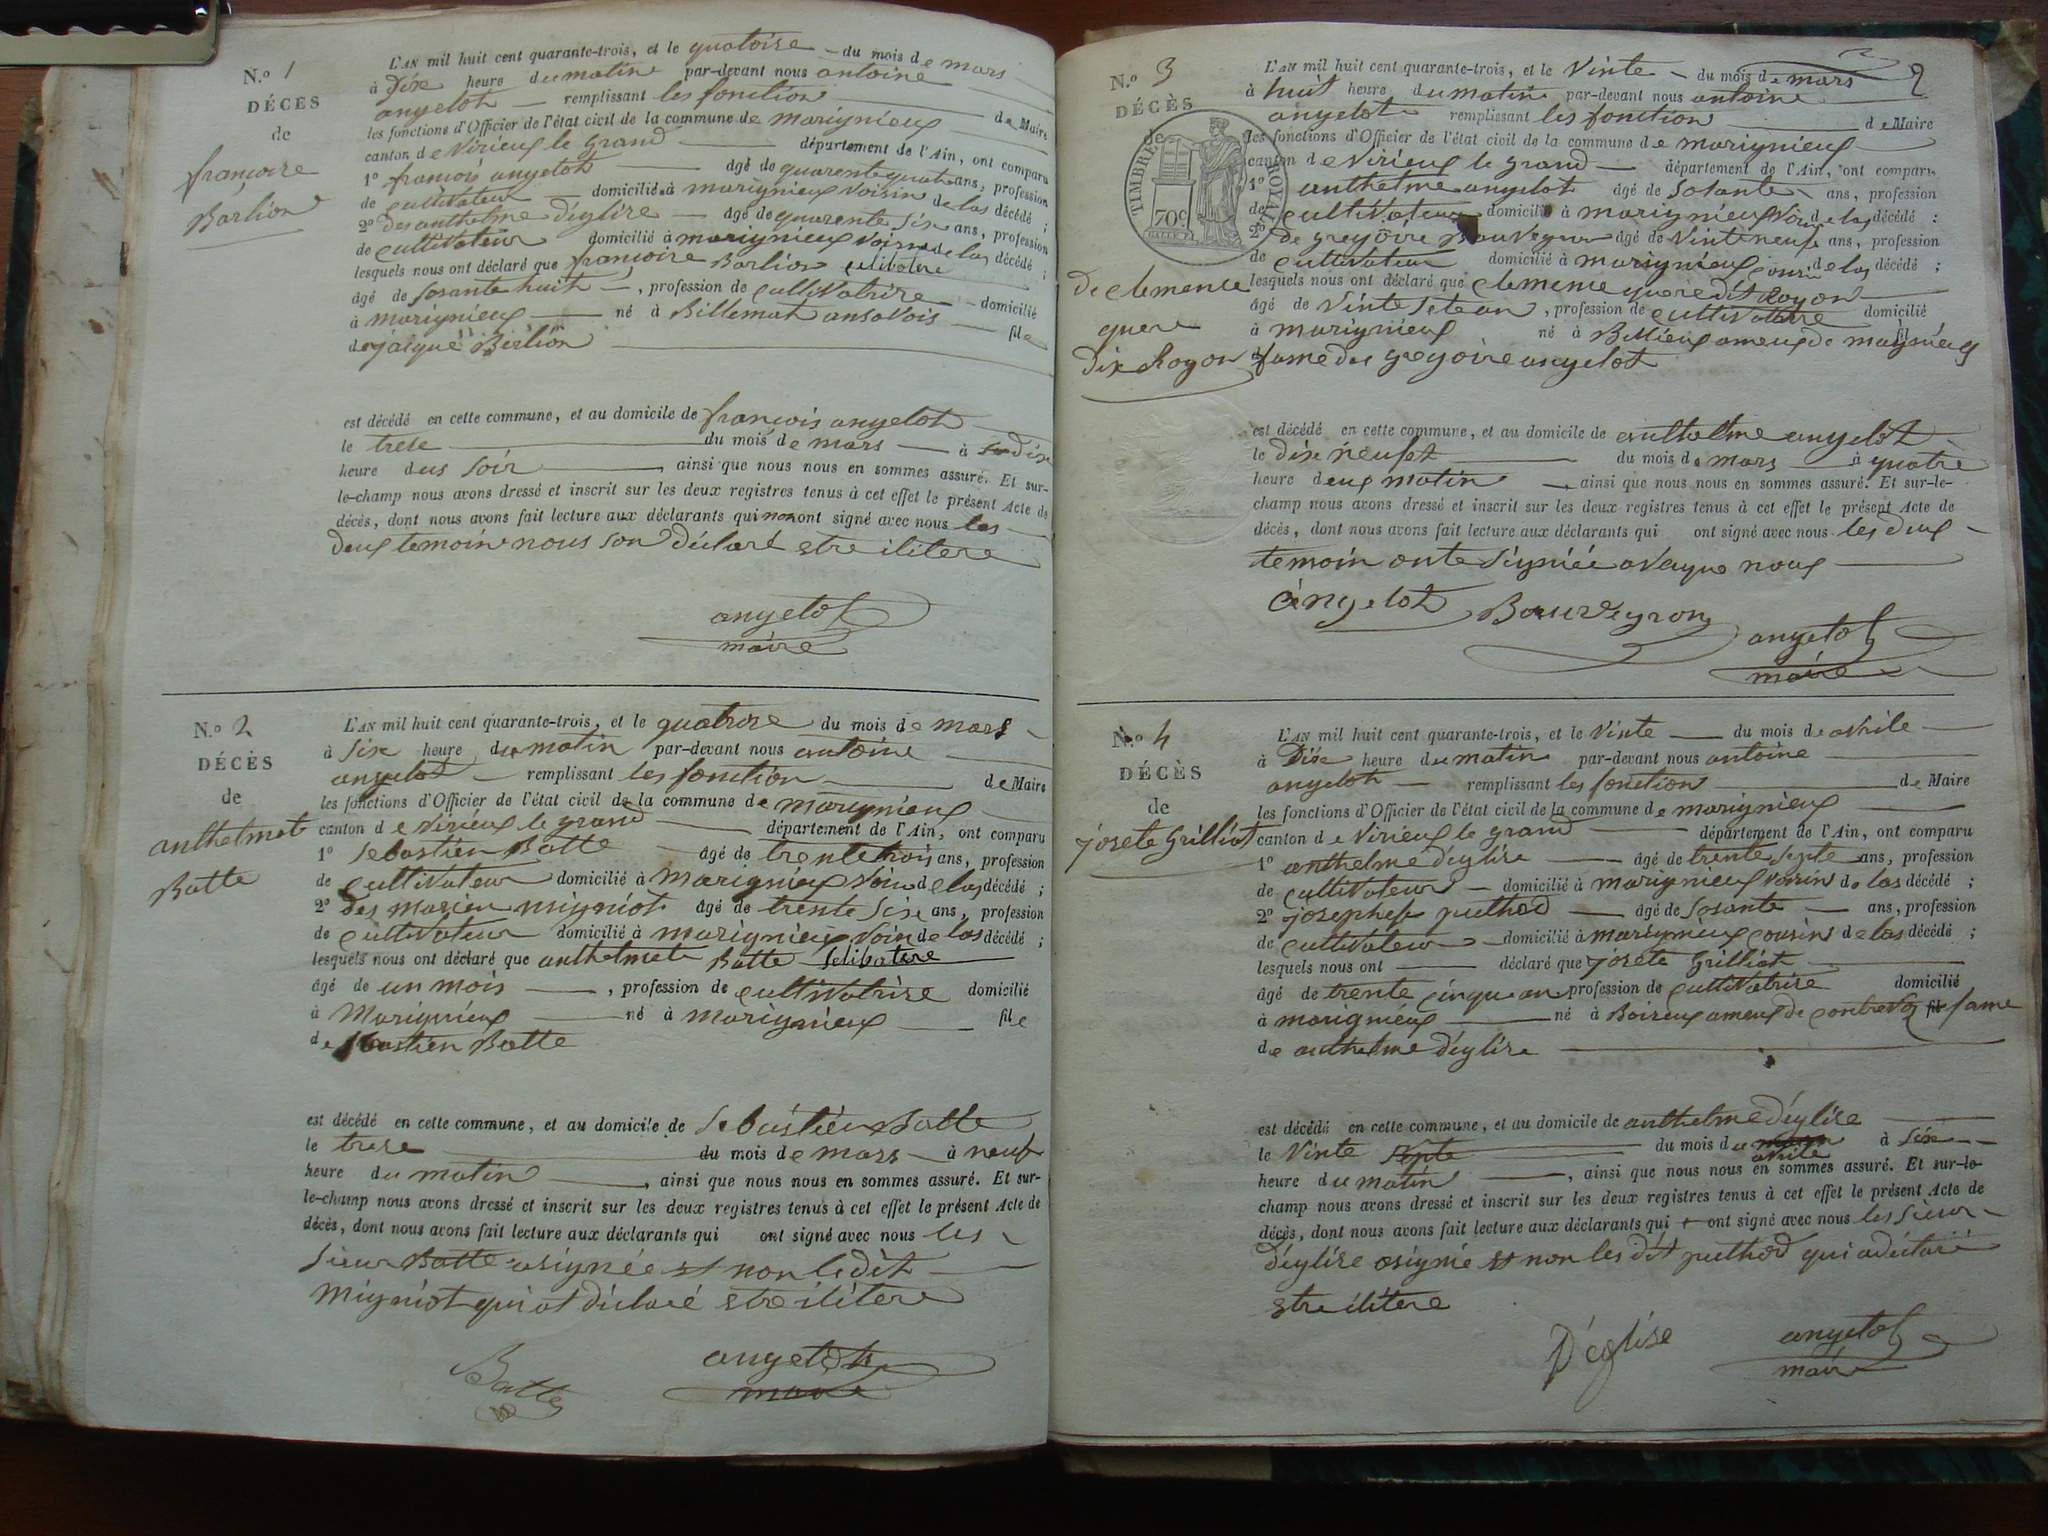 N.o 1
DÉCES
de
francoise
Barlion
L'AN mil huit cent quarante-trois, et le quatoise du mois de mars
à Dix heure du matin par-devant nous antoine
angelot remplissant les fonction de Maire
les fonctions d'Officier de l'état civil de la commune de marignieux
canton de Virieux le grand département de l'Ain, ont comparu
1o françois angelot âgé de quarente quatre ans, profession
de cultivateur domicilié à marignieux voisin de las décédé ;
2o des anthelme d'église âgé de quarente six ans, profession
de cultivateur domicilié à marignieux voisin de las décédé ;
lesquels nous ont déclaré que françoise Barlion celibatere
âgé de sosante huit , profession de cultivatrise domicilié
à marignieux né à Billemat ansavois file
de jacque Berlion
est décédé en cette commune, et au domicile de françois angelot
le trese du mois de mars à dix
heure dus soir , ainsi que nous nous en sommes assuré. Et sur-
le-champ nous avons dressé et inscrit sur les deux registres tenus à cet effet le présent Acte de
décès, dont nous avons fait lecture aux déclarants qui non ont signé avec nous les
deux temoin nous son déclaré etre ilitere
angelot
maire
N.o 2
DÉCÈS
de
anthelmete
Batte
L'AN mil huit cent quarante-trois, et le quatorse du mois de mars
à six heure du matin par-devant nous antoine
angelot remplissant les fonction de Maire
les fonctions d'Officier de l'état civil de la commune de marignieux
canton de Virieux le grand département de l'Ain, ont comparu
1o Sebastien Batte âgé de trente trois ans, profession
de cultivateur domicilié à marignieux voin de las décédé ;
2o des marien migniot âgé de trente six ans, profession
de cultivateur domicilié à marignieux voin de las décédé ;
lesquels nous ont déclaré que anthelmete Batte selibatere
âgé de un mois , profession de cultivatrise domicilié
à Marignieux né à marignieux file
de sebastien Batte
est décédé en cette commune, et au domicile de Sebastien Batte
le trese du mois de mars à neuf
heure du matin , ainsi que nous nous en sommes assuré. Et sur-
le-champ nous avons dressé et inscrit sur les deux registres tenus à cet effet le présent Acte de
décès, dont nous avons fait lecture aux déclarants qui ont signé avec nous les
sieur Batte a signée et non le dit
migniot qui at déclaré etre ilitere
Batte
angelot
maire
2
N.o 3
DÉCÈS
de
TIMBRE ROYAL
70c
de clemence
quere
dix Royon
L'AN mil huit cent quarante-trois, et le Vinte du mois de mars
à huit heure du matin par-devant nous antoine
angelot remplissant les fonction de Maire
les fonctions d'Officier de l'état civil de la commune de marignieux
canton de Virieux le grand département de l'Ain, ont comparu
1o anthelme angelot âgé de sosante ans, profession
de cultivateur domicilié à marignieux voin de las décédé ;
2o de gregoire Bouveyron âgé de vinte neuf ans, profession
de cultivateur domicilié à marignieux cousin de las décédé ;
lesquels nous ont déclaré que clemense quere dit Royon
âgé de vinte sete an , profession de cultivatrise domicilié
à marignieux né à Billieux ameux de magnieux
fame des gregoire angelot
est décédé en cette commune, et au domicile de anthelme angelot
le dixe neufet du mois de mars à quatre
heure deux matin , ainsi que nous nous en sommes assuré. Et sur-le-
champ nous avons dressé et inscrit sur les deux registres tenus à cet effet le présent Acte de
décès, dont nous avons fait lecture aux déclarants qui ont signé avec nous les deux
temoin onte signiée aveque nous
angelot Bouveyron
angelot
maire
N.o 4
DÉCÈS
de
josete Grilliot
L'AN mil huit cent quarante-trois, et le Vinte du mois de avrile
à Dixe heure du matin par-devant nous antoine
angelot remplissant les fonction de Maire
les fonctions d'Officier de l'état civil de la commune de marignieux
canton de Virieux le grand département de l'Ain, ont comparu
1o anthelme d'églire âgé de trente septe ans, profession
de cultivateur domicilié à marignieux voisin de las décédé ;
2o josephet puthod âgé de sosante ans, profession
de cultivateur domicilié à marignieux cousin de las décédé ;
lesquels nous ont déclaré que josete Grilliot
âgé de trente cinque an profession de cultivatrise domicilié
à marignieux né à Boireux ameux de contrevoz fil fame
de anthelme d'églire
est décédé en cette commune, et au domicile de anthelme d'églire
le Vinte septe du mois du avrile à six
heure du matin , ainsi que nous nous en sommes assuré. Et sur-le-
champ nous avons dressé et inscrit sur les deux registres tenus à cet effet le présent Acte de
décès, dont nous avons fait lecture aux déclarants qui ont signé avec nous les sieur
d'églire a signé et non les dit puthod qui a déclaré
etre ilitere
D'église
angelot
maire